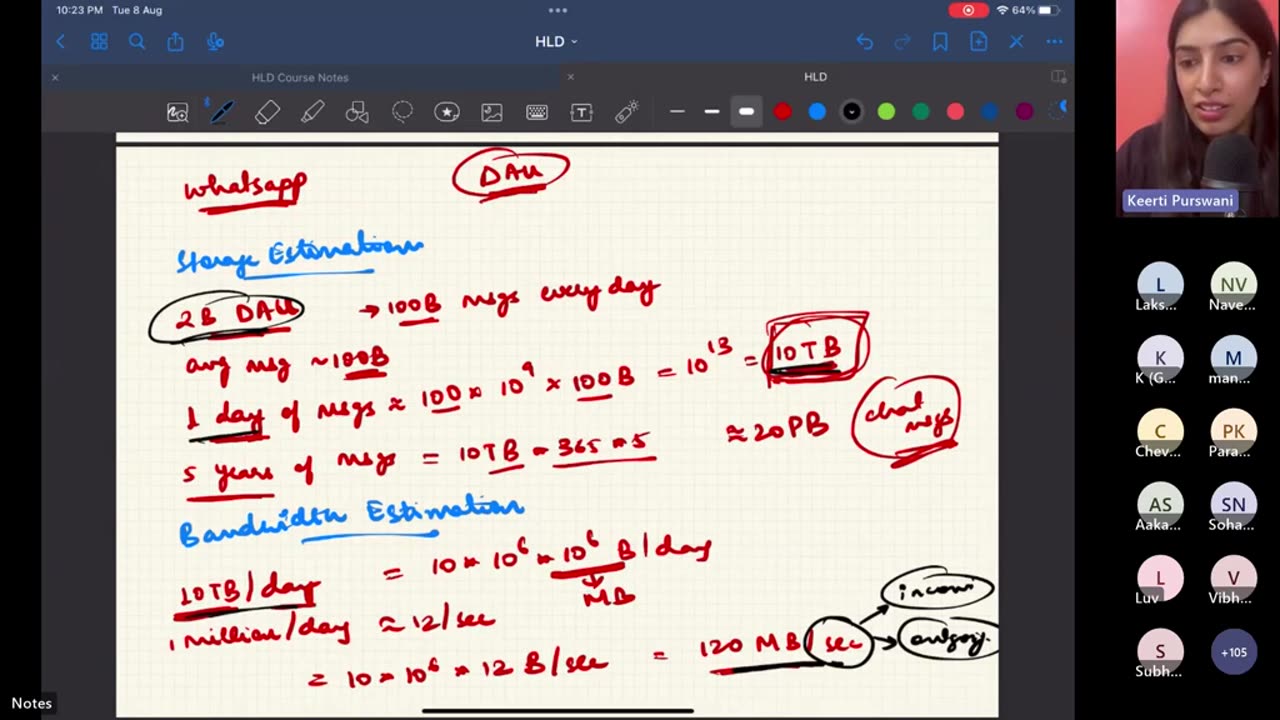 10:23 PM Tue 8 Aug
64%
HLD
HLD Course Notes
HLD
whatsapp
DAU
Storage Estimation
2B DAU → 100B msgs every day
avg msg ~100B
1 day of msgs ≈ 100 * 10^9 * 100B = 10^13 = 10TB
5 years of msgs = 10TB * 365 * 5 ≈ 20PB
chat msgs
Bandwidth Estimation
10TB/day = 10 * 10^6 * 10^6 B/day
MB
1 million/day ≈ 12/sec
= 10 * 10^6 * 12 B/sec = 120 MB/sec
Notes
Keerti Purswani
L NV
Laks... Nave...
K M
K (G... man...
C PK
Chev... Para...
AS SN
Aaka... Soha...
L V
Luv Vibh...
S +105
Subh...